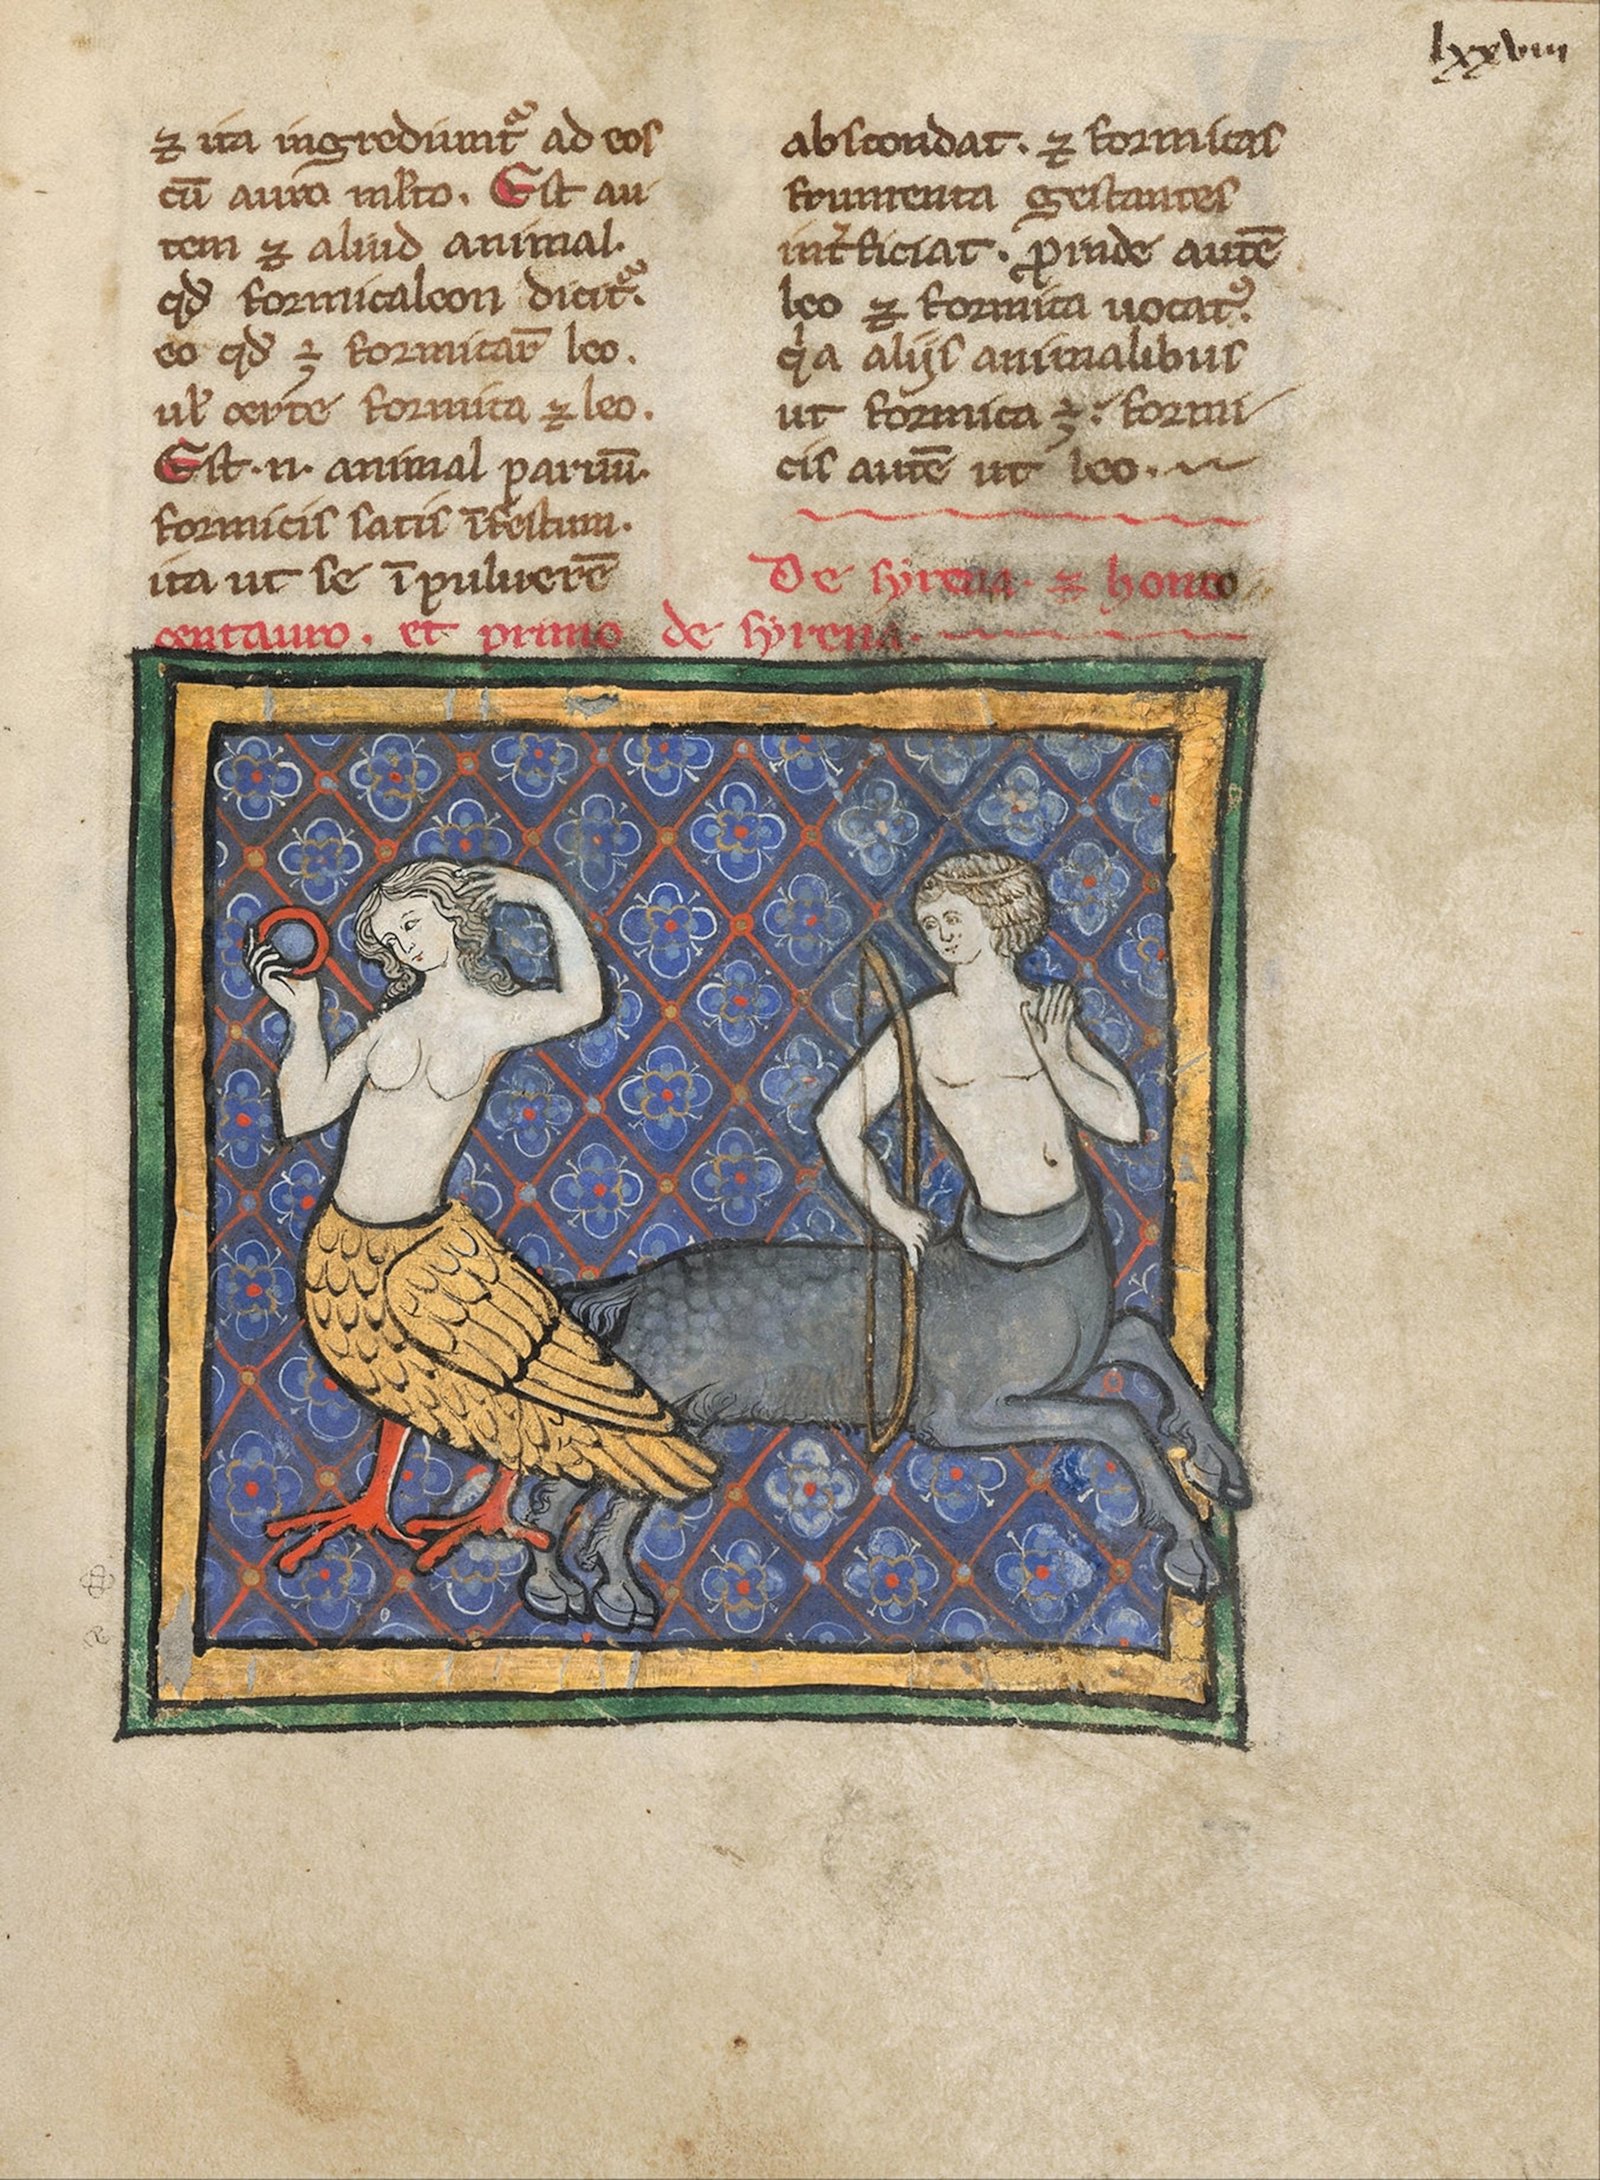 lxxviii
⁊ ita ingrediunt᷑ ad eos
cū auro ml̄to. Est au
tem ⁊ aliud animal.
qd̄ formicaleon dicit᷑.
eo qd̄ ÷ formicaꝝ leo.
ul̄ certe formica ⁊ leo.
Est .n. animal paruū.
formicis satis īfestum.
ita ut se ī puluerē
abscondat. ⁊ formicas
frumenta gestantes
int̓ficiat. ꝓinde autē
leo ⁊ formica uocat᷑.
qͥa alijs animalibus
ut formica ÷. formi
cis autē ut leo.
De syrena. ⁊ hono
centauro. et primo de syrena.